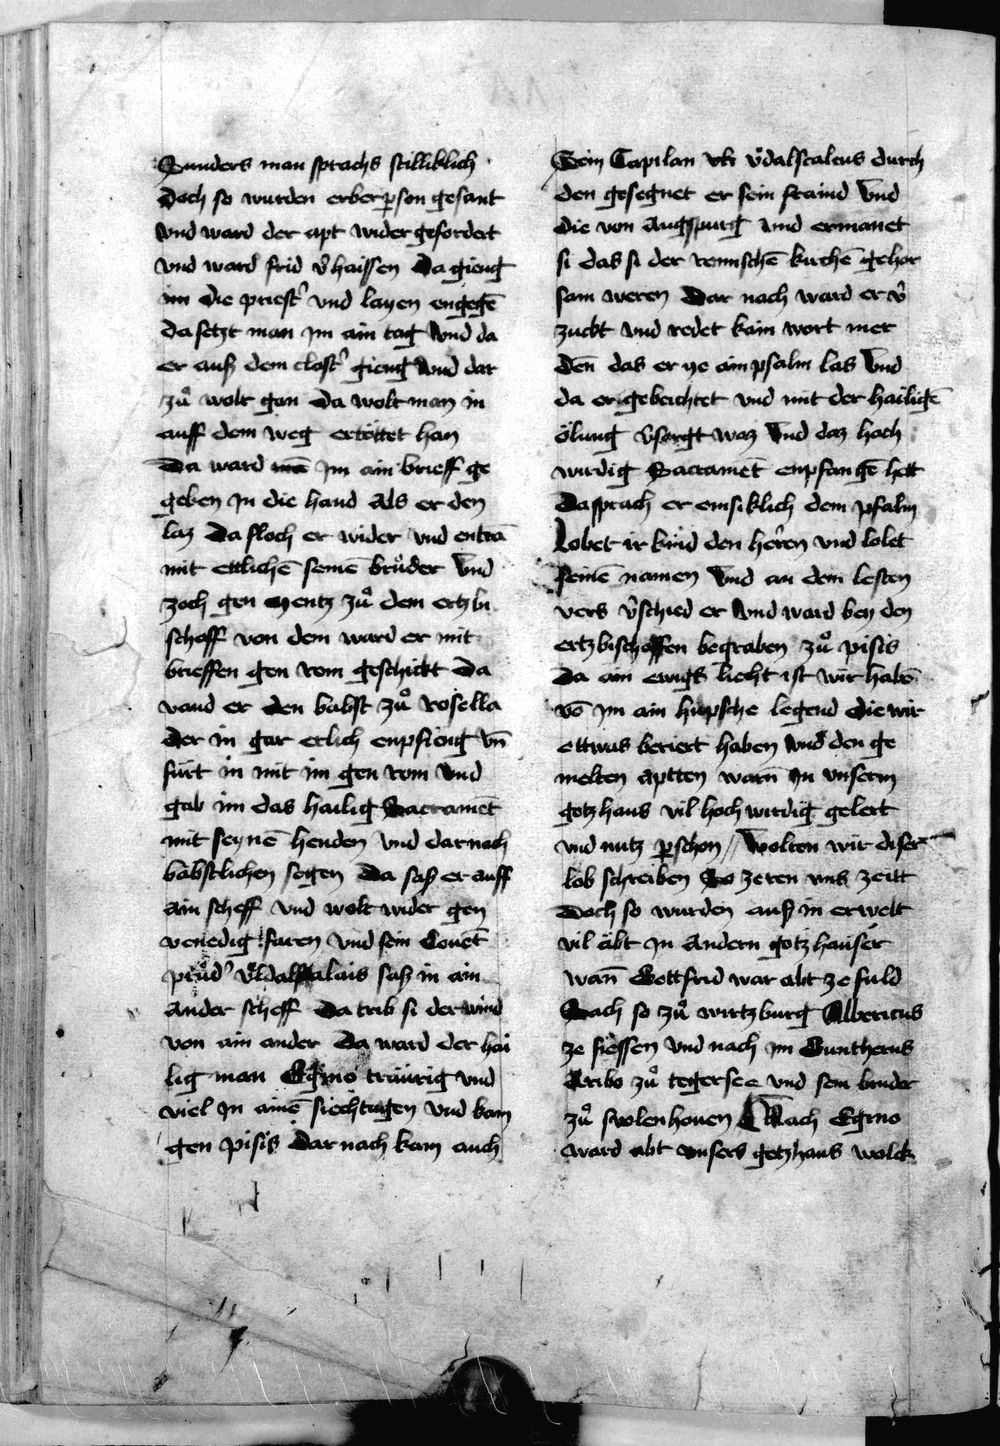 Sunders man sprachs stilliklich
doch so wurden erber pson gesant
vnd ward der apt wider gefordert
vnd ward frid v̓haissen Da gieng
im die priest̓ vnd layen engegē
da setzt man im ain tag vnd da
er auß dem clost̓ gieng vnd dar
zuͦ wolt gan Da wolt man in
auff dem weg ertöttet han
Da ward im ain brieff ge
geben in die hand Als er den
laz Da floch er wider vnd entrā
mit ettlichē seinē bruͦder vnd
zoch gen mentz zuͦ dem ertzbi
schoff von dem ward er mit
brieffen gen rom geschickt Da
vand er den babst zuͦ rosella
der in gar erlich enpfieng vn̄
fürt in mit im gen rom vnd
gab im das hailig Sacramēt
mit seynē henden vnd darnach
bäbstlichen segen Da saß er auff
ain scheff vnd wolt wider gen
venedig faren vnd sein Couēt
pruͦd̓ saß in ain
ander scheff Da trib si der wind
von ain ander Da ward der hai
lig man Egino traurig vnd
viel in ainē siechtagen vnd kam
gen pisis Dar nach kam auch
Sein Capilan vlr vͦdalscalcus durch
den gesegnet er sein fraind vnd
die von Augspurg vnd ermanet
si das si der remischē kirchē gehor
sam weren Dar nach ward er v̓
zuckt vnd redet kain wort mer
den̄ das er ye ain psalm las vnd
da er gebeichtet vnd mit der hailigē
ölung v̓sorgt waz vnd daz hoch
wirdig Sacramēt enpfangē hett
Da sprach er emsiklich dem psalm
Lobet ir kind den her̄en vnd lobet
seinē namen vnd an dem lesten
vers v̓schied er vnd ward bey den
ertzbischoffen begraben zuͦ pisis
Da ain ewigs liecht ist wir habē
vō im ain hüpsche legend die wir
ettwas beriert haben vnd den ge
melten aptten warn̄ in vnserm
gotzhaus vil hoch wirdig gelert
vnd nutz pschon // Wolten wir diser
lob schreiben So zeren vns zeitt
Doch so wurden auß in erwelt
vil äbt in andern gotzhaüser
wan̄ Gottfrid war abt ze fuld
Nach so zuͦ wirtzburg Albericus
ze fiessen vnd nach im Guntherus
Aribo zuͦ tegersee vnd sein bruder
zuͦ swlenhouen Nach Egino
ward abt vnsers gotzhaus wolck